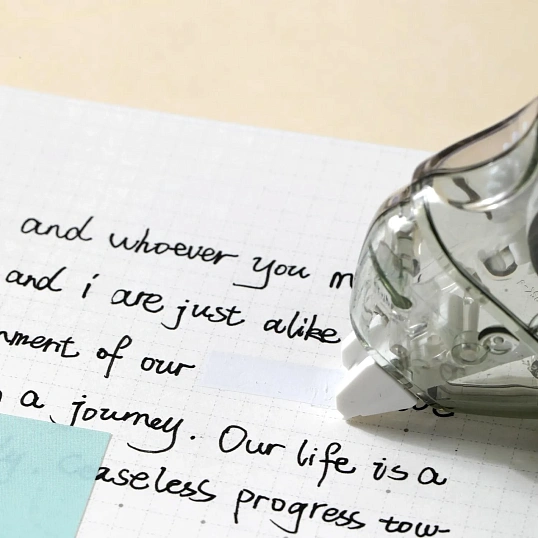 and whoever you
and i are just alike
of our
a journey. Our life is a
ceaseless progress tow-